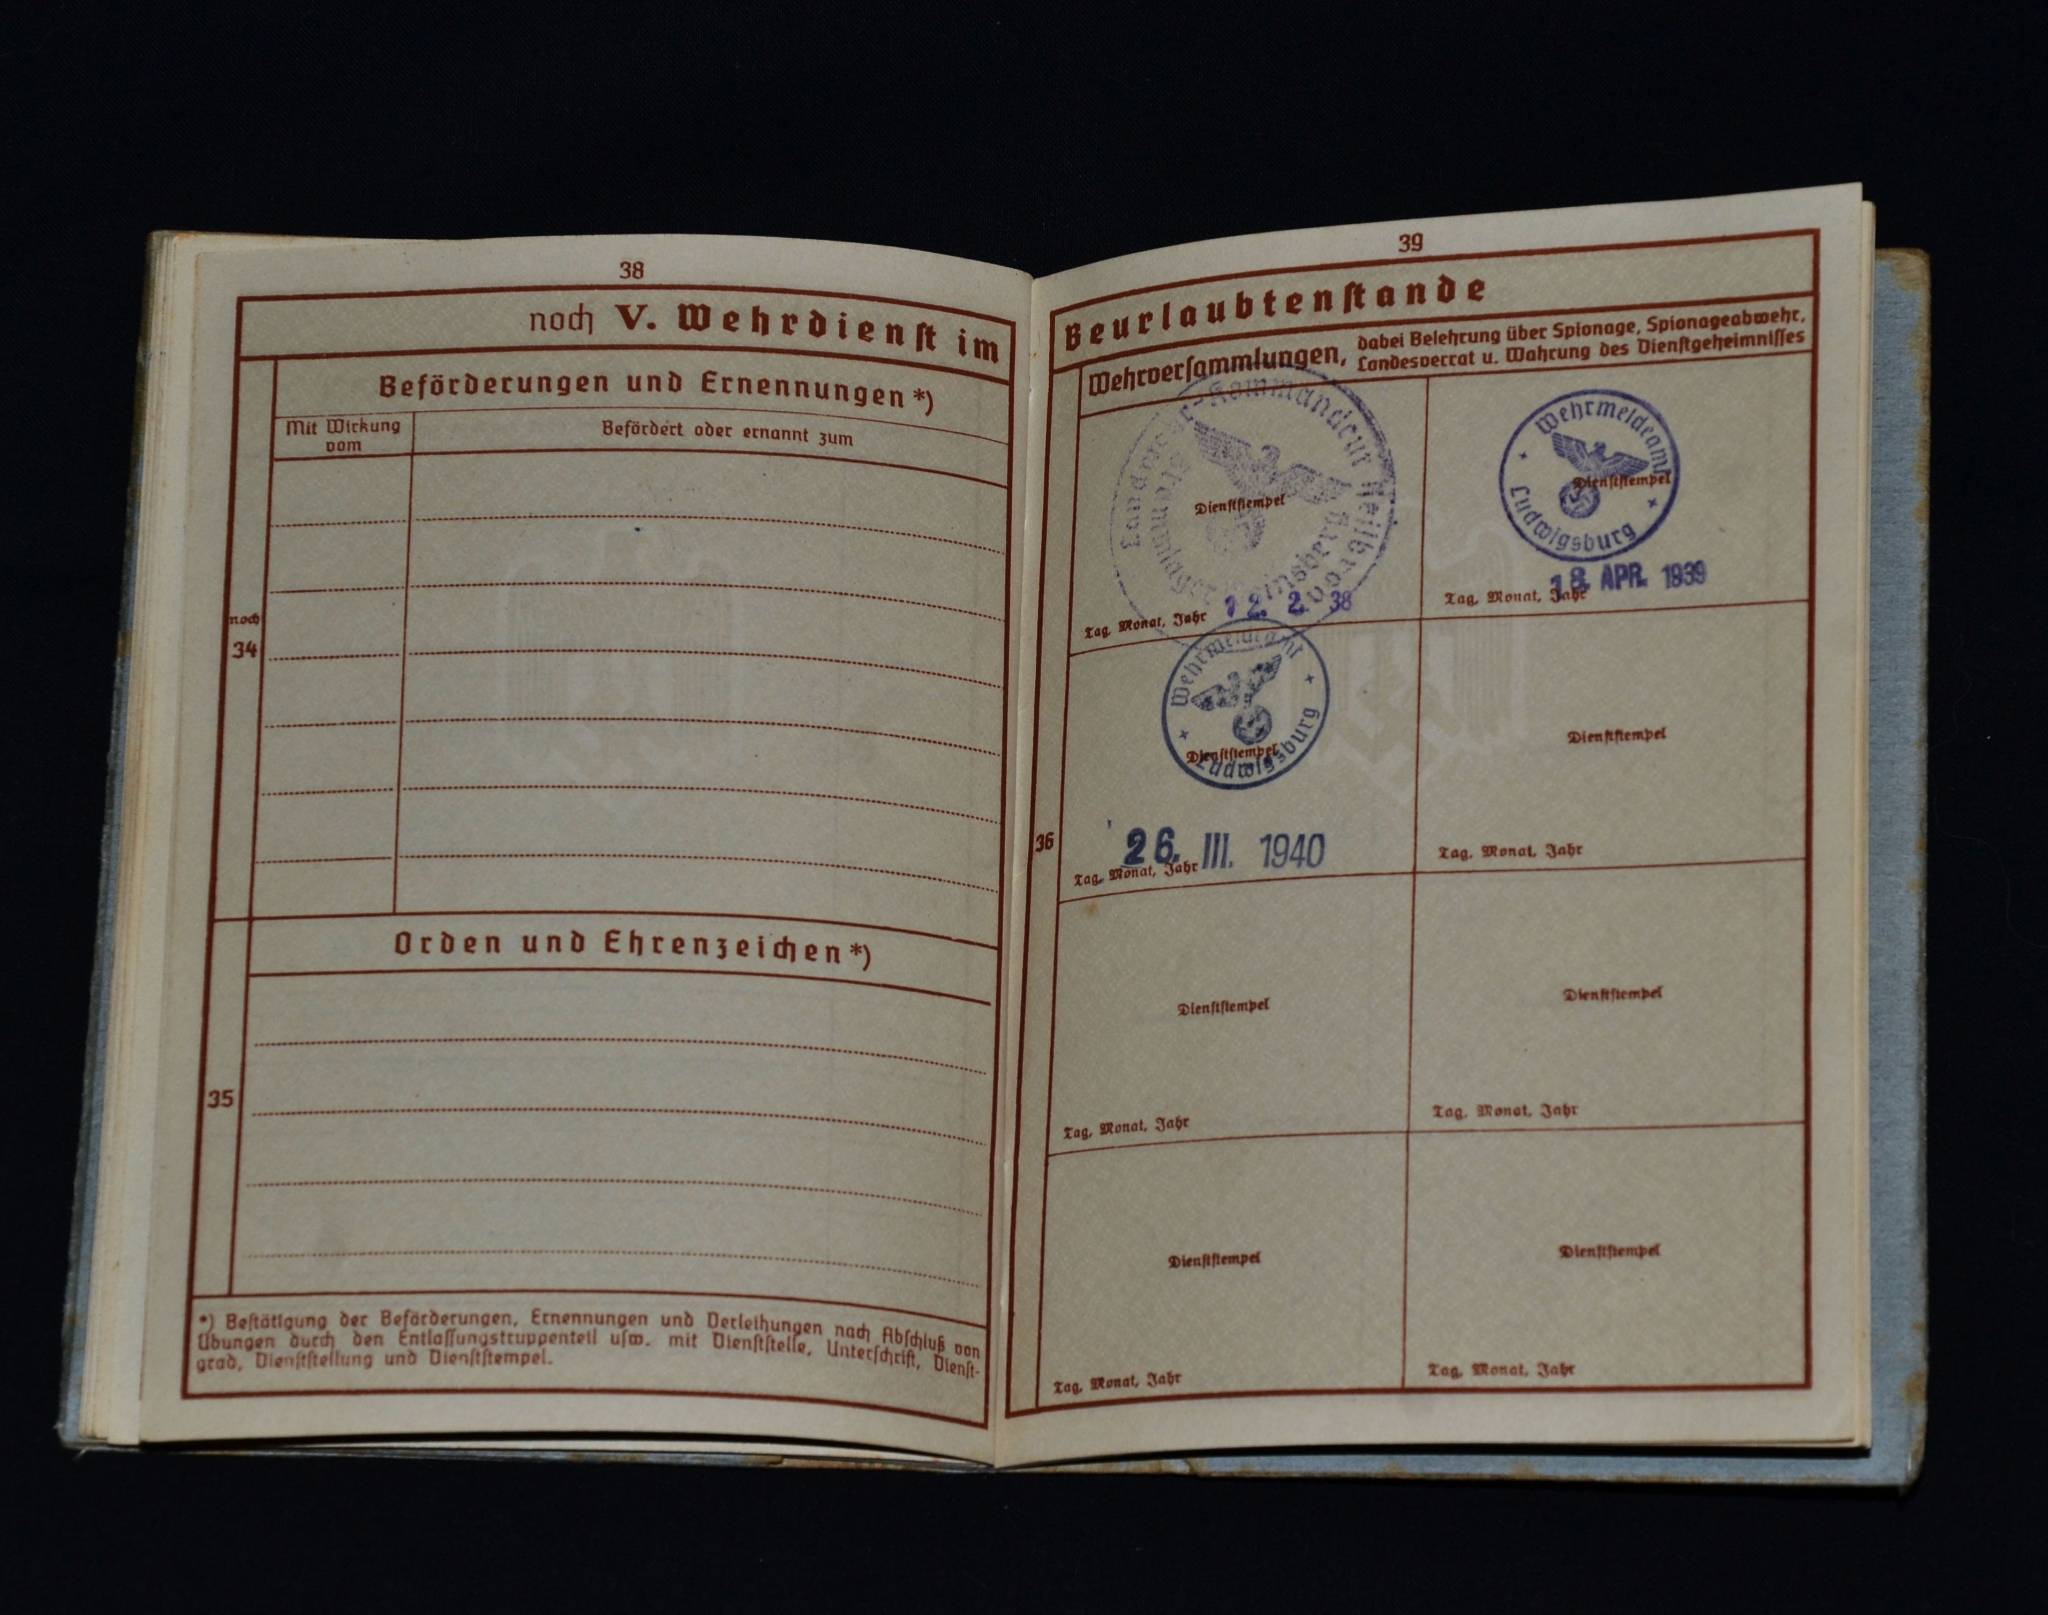 38
noch V. Wehrdienst im
Beförderungen und Ernennungen *)
Mit Wirkung
vom
Befördert oder ernannt zum
noch
34
Orden und Ehrenzeichen *)
35
*) Bestätigung der Beförderungen, Ernennungen und Verleihungen nach Abschluß von
Übungen durch den Entlassungstruppenteil usw. mit Dienststelle, Unterschrift, Dienst-
grad, Dienststellung und Dienststempel.
39
Beurlaubtenstande
Wehrversammlungen,
dabei Belehrung über Spionage, Spionageabwehr,
Landesverrat u. Wahrung des Dienstgeheimnisses
Kommandeur Heilbronn
Stammlager Weinsberg
Dienststempel
Tag, Monat, Jahr
12. 2. 38
Wehrmeldeamt
Ludwigsburg
Dienststempel
Tag, Monat, Jahr
18. APR. 1939
36
Wehrmeldeamt
Ludwigsburg
Dienststempel
Tag, Monat, Jahr
26. III. 1940
Dienststempel
Tag, Monat, Jahr
Dienststempel
Tag, Monat, Jahr
Dienststempel
Tag, Monat, Jahr
Dienststempel
Tag, Monat, Jahr
Dienststempel
Tag, Monat, Jahr